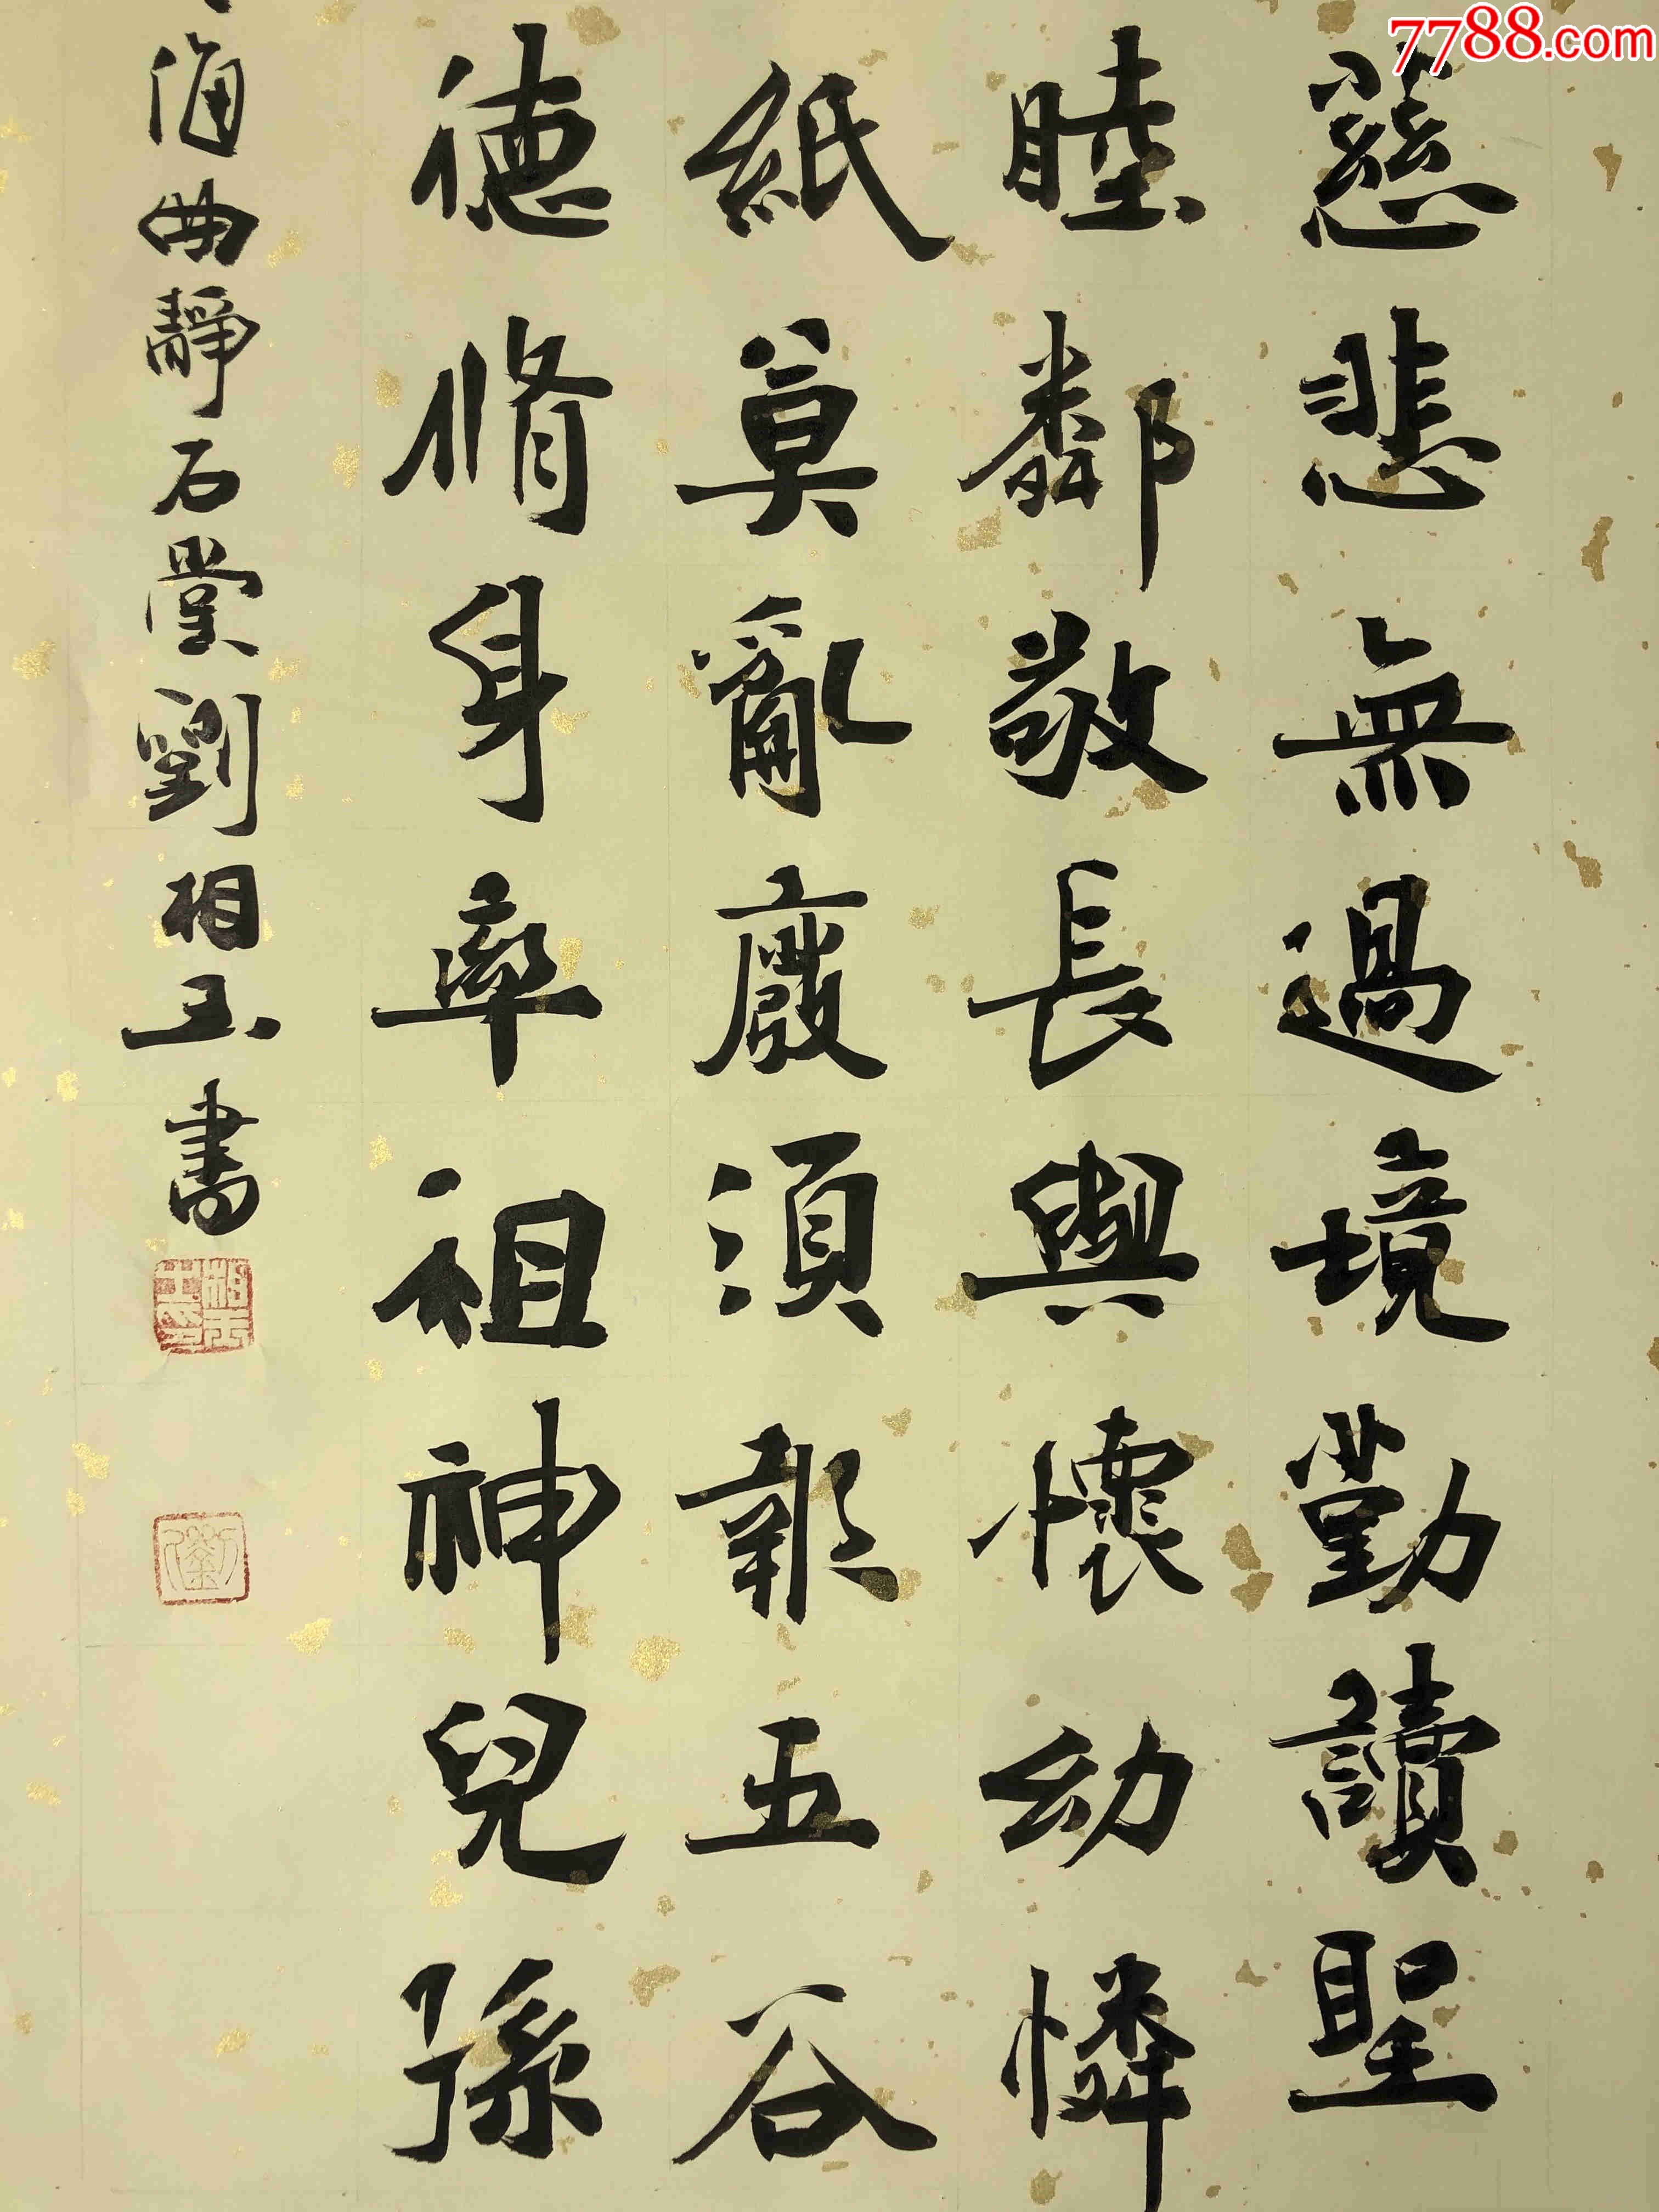 7788.com
慈悲無過境勤讀聖
睦鄰敬長與懷幼憐
紙莫亂廢須報五谷
德脩身率祖神兒孫
海曲靜石堂劉相玉書